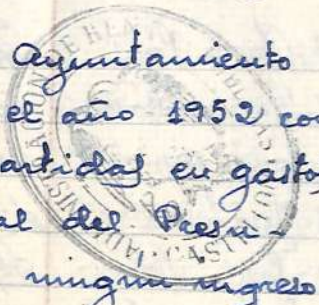 Ayuntamiento
el año 1952 con
artidas en gastos
al del Presu-
ningún ingreso